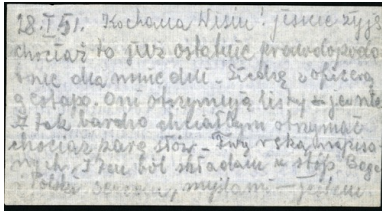 28.I 51. Kochana Wisiu! jeszcze żyję
chociaż to już ostatnie prawdopodo
bnie dla mnie dni. Siedzę z oficerą
gestapo. Oni otrzymują listy – ja nie
A tak bardzo chciałbym otrzymać
chociaż parę słów – Twą ręką napisa
nych. I ten ból składam u stóp Boga
i Polski myślami – jestem